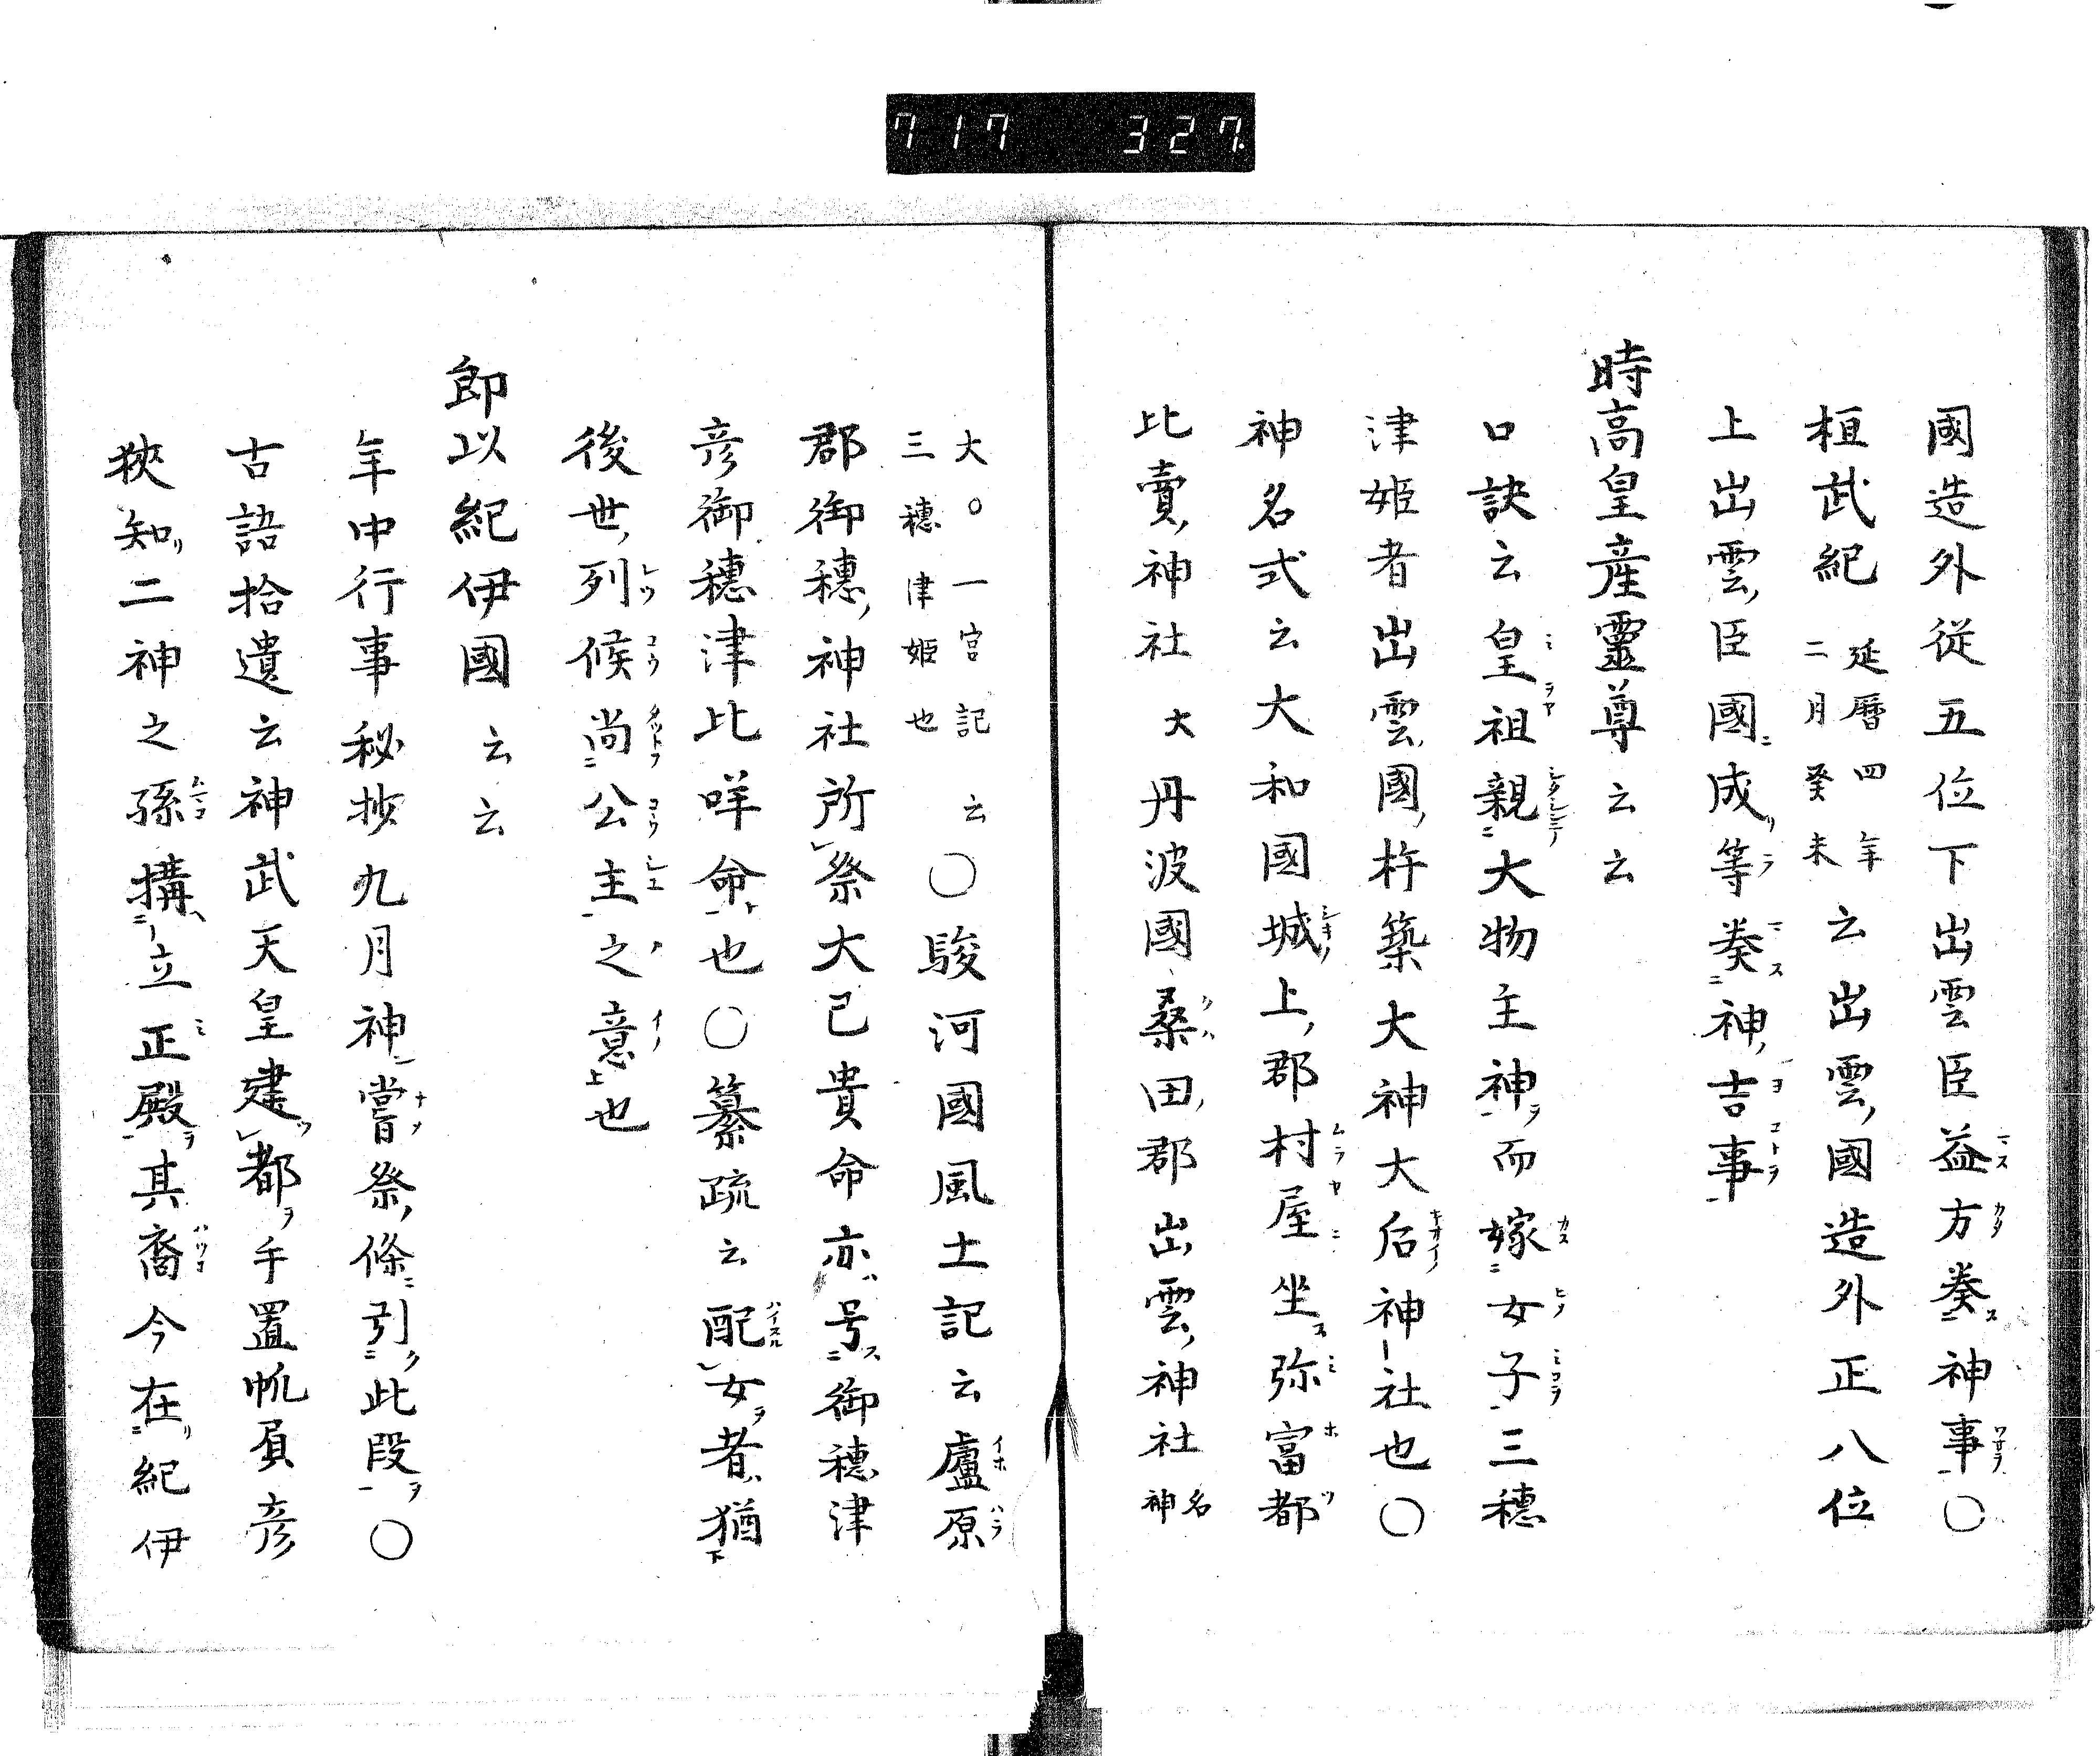 717 327
國造外従五位下出雲臣益方奏神事〇
桓武紀延曆四年二月癸未云出雲國造外正八位
上出雲臣國成等奏神吉事
時高皇産靈尊云云
口訣云皇祖親大物主神而嫁女子三穗
津姬者出雲國杵築大神大后神社也〇
神名式云大和國城上郡村屋坐弥富都
比賣神社大丹波國桑田郡出雲神社名神
大〇一宮記云三穗津姬也〇駿河國風土記云廬原
郡御穗神社所祭大己貴命亦号御穗津
彦御穗津比咩命也〇纂疏云配女者猶
後世列候尚公主之意也
即以紀伊國云云
年中行事秘抄九月神嘗祭條引此段〇
古語拾遺云神武天皇建都手置帆負彦
狹知二神之孫搆立正殿其裔今在紀伊